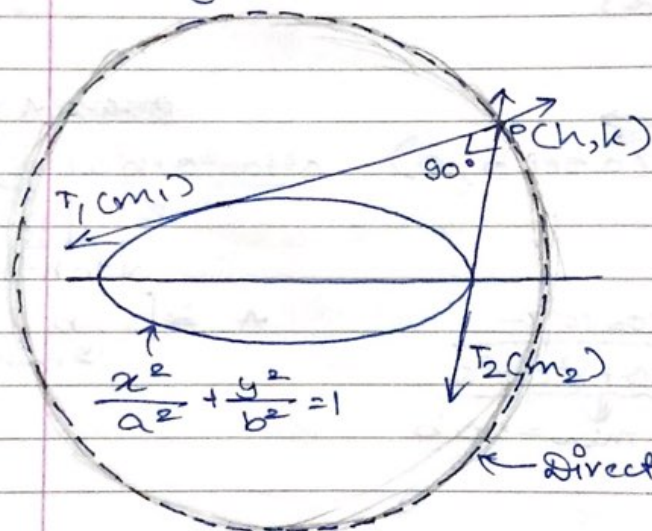 P(h,k)
90°
T₁(m₁)
T₂(m₂)
x²/a² + y²/b² = 1
Direct